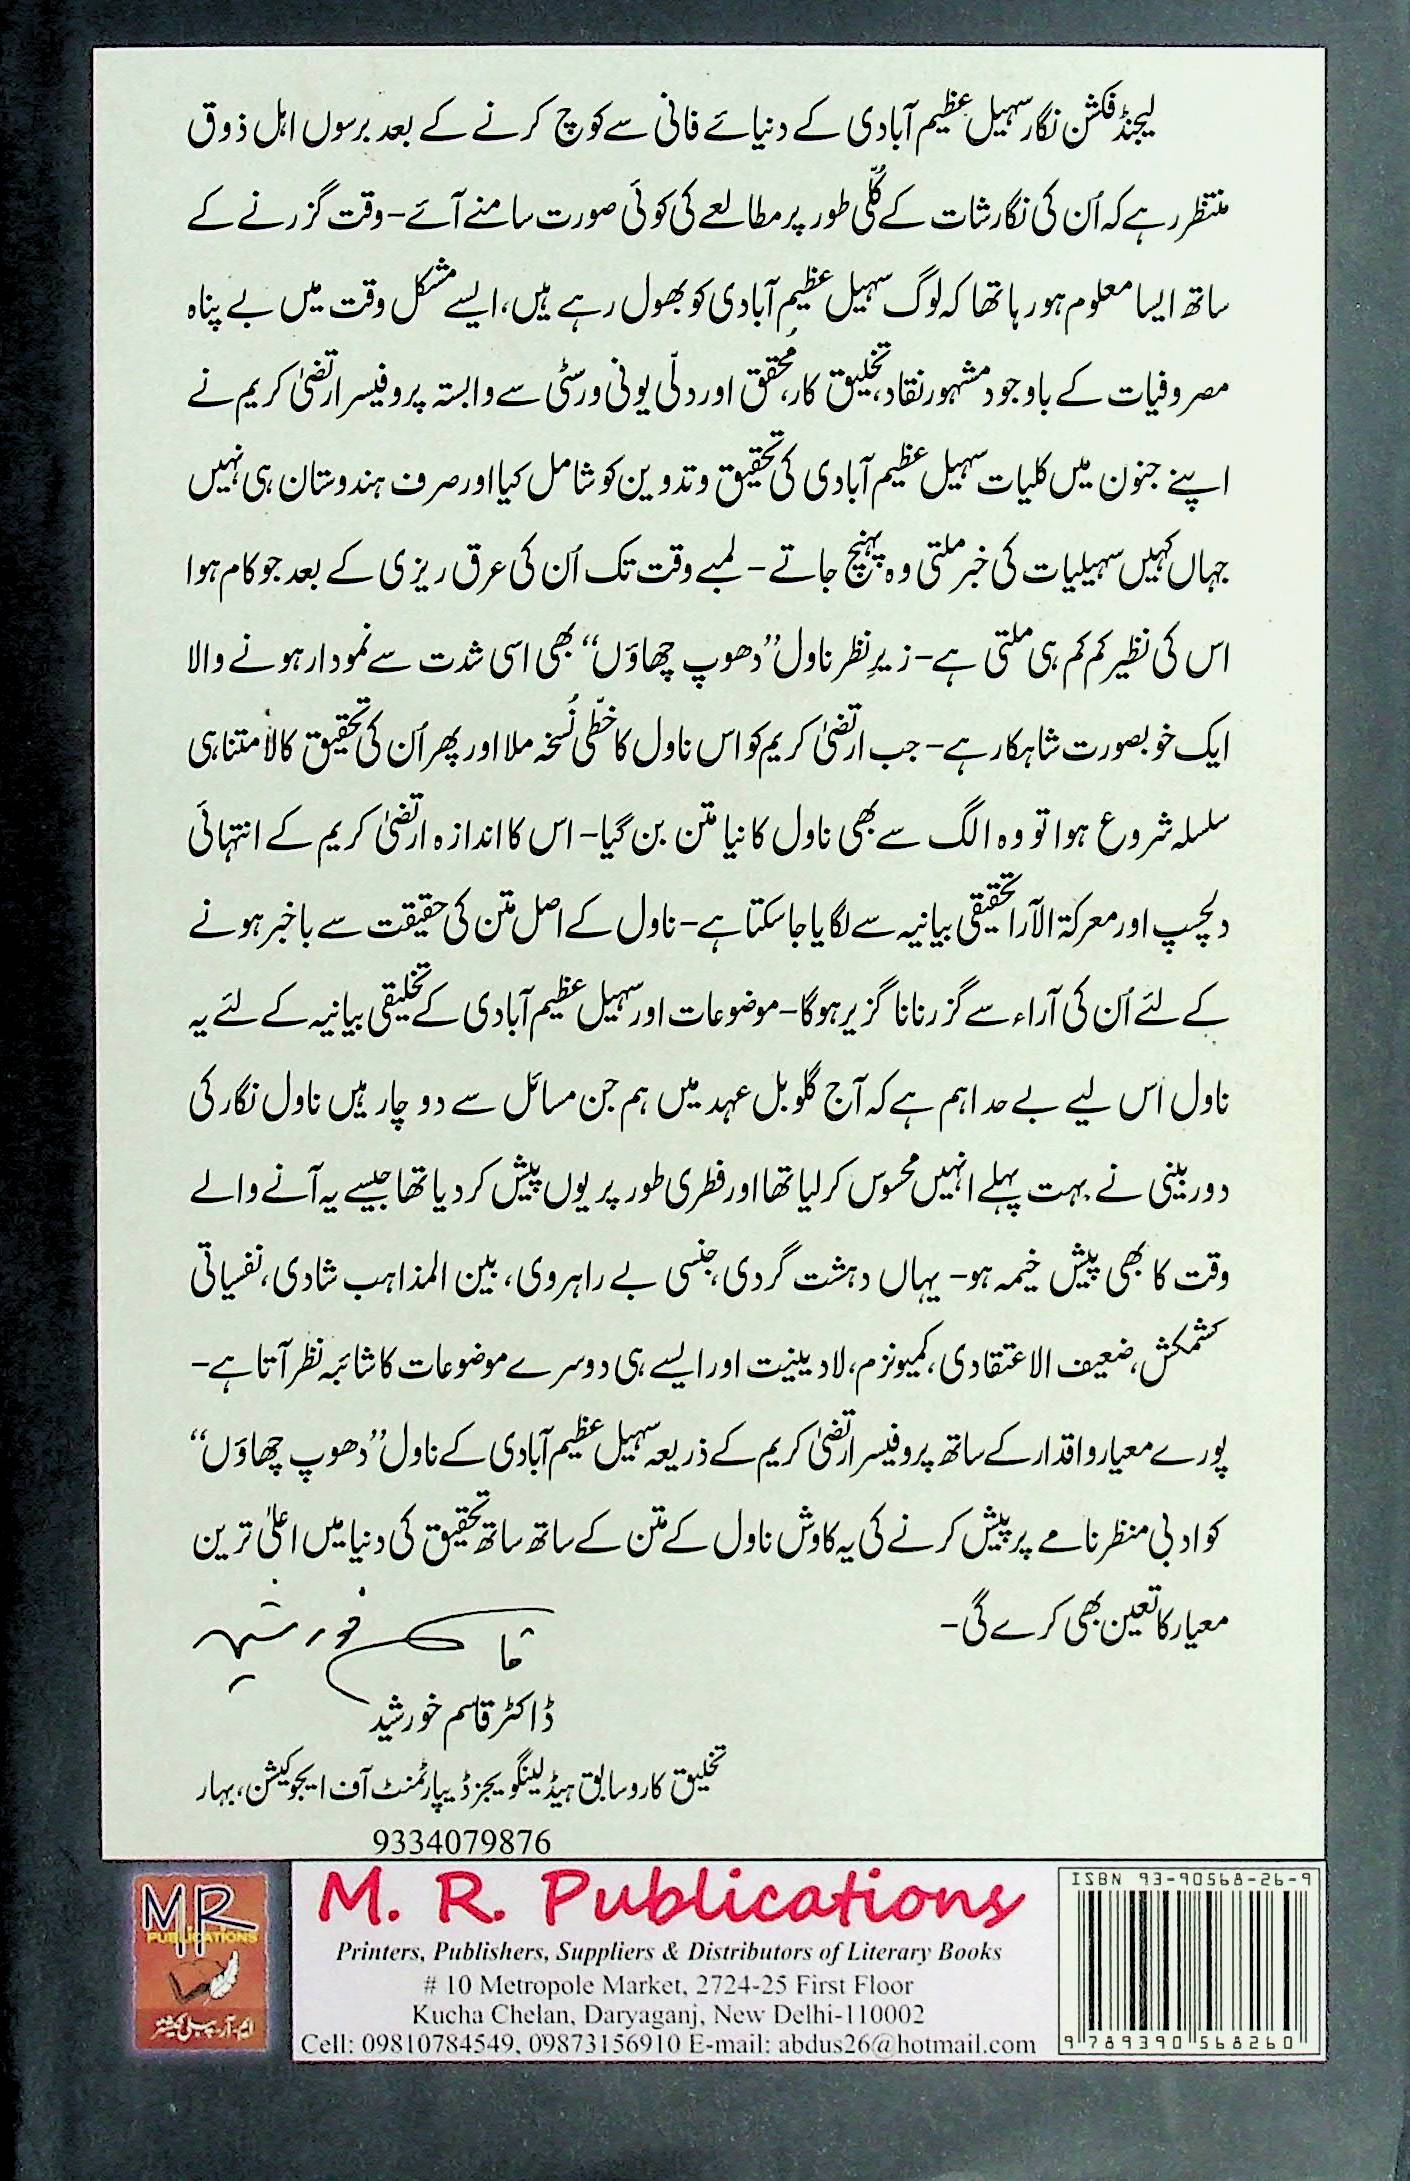 لیجنڈ فکشن نگار سہیل عظیم آبادی کے دنیائے فانی سے کوچ کرنے کے بعد برسوں اہل ذوق
منتظر رہے کہ اُن کی نگارشات کے کُلّی طور پر مطالعے کی کوئی صورت سامنے آئے۔ وقت گزرنے کے
ساتھ ایسا معلوم ہو رہا تھا کہ لوگ سہیل عظیم آبادی کو بھول رہے ہیں، ایسے مشکل وقت میں بے پناہ
مصروفیات کے باوجود مشہور نقاد، تخلیق کار، مُحقق اور دلّی یونی ورسٹی سے وابستہ پروفیسر ارتضیٰ کریم نے
اپنے جنون میں کلیات سہیل عظیم آبادی کی تحقیق و تدوین کو شامل کیا اور صرف ہندوستان ہی نہیں
جہاں کہیں سہیلیات کی خبر ملتی وہ پہنچ جاتے۔ لمبے وقت تک اُن کی عرق ریزی کے بعد جو کام ہوا
اس کی نظیر کم کم ہی ملتی ہے۔ زیرِ نظر ناول ”دھوپ چھاؤں“ بھی اسی شدت سے نمودار ہونے والا
ایک خوبصورت شاہکار ہے۔ جب ارتضیٰ کریم کو اس ناول کا خطّی نُسخہ ملا اور پھر اُن کی تحقیق کا لامتناہی
سلسلہ شروع ہوا تو وہ الگ سے بھی ناول کا نیا متن بن گیا۔ اس کا اندازہ ارتضیٰ کریم کے انتہائی
دلچسپ اور معرکۃ الآرا تحقیقی بیانیہ سے لگایا جا سکتا ہے۔ ناول کے اصل متن کی حقیقت سے باخبر ہونے
کے لئے اُن کی آراء سے گزرنا ناگزیر ہوگا۔ موضوعات اور سہیل عظیم آبادی کے تخلیقی بیانیہ کے لئے یہ
ناول اس لیے بے حد اہم ہے کہ آج گلوبل عہد میں ہم جن مسائل سے دو چار ہیں ناول نگار کی
دوربینی نے بہت پہلے انہیں محسوس کر لیا تھا اور فطری طور پر یوں پیش کر دیا تھا جیسے یہ آنے والے
وقت کا بھی پیش خیمہ ہو۔ یہاں دہشت گردی، جنسی بے راہروی، بین المذاہب شادی، نفسیاتی
کشمکش، ضعیف الاعتقادی، کمیونزم، لادینیت اور ایسے ہی دوسرے موضوعات کا شائبہ نظر آتا ہے۔
پورے معیار و اقدار کے ساتھ پروفیسر ارتضیٰ کریم کے ذریعہ سہیل عظیم آبادی کے ناول ”دھوپ چھاؤں“
کو ادبی منظر نامے پر پیش کرنے کی یہ کاوش ناول کے متن کے ساتھ ساتھ تحقیق کی دنیا میں اعلیٰ ترین
معیار کا تعین بھی کرے گی۔
قاسم خورشید
ڈاکٹر قاسم خورشید
تخلیق کار و سابق ہیڈ لینگویجز ڈیپارٹمنٹ آف ایجوکیشن، بہار
9334079876
MR
PUBLICATIONS
ایم۔ آر۔ پبلی کیشنز
M. R. Publications
Printers, Publishers, Suppliers & Distributors of Literary Books
# 10 Metropole Market, 2724-25 First Floor
Kucha Chelan, Daryaganj, New Delhi-110002
Cell: 09810784549, 09873156910 E-mail: abdus26@hotmail.com
ISBN 93-90568-26-9
9 789390 568260